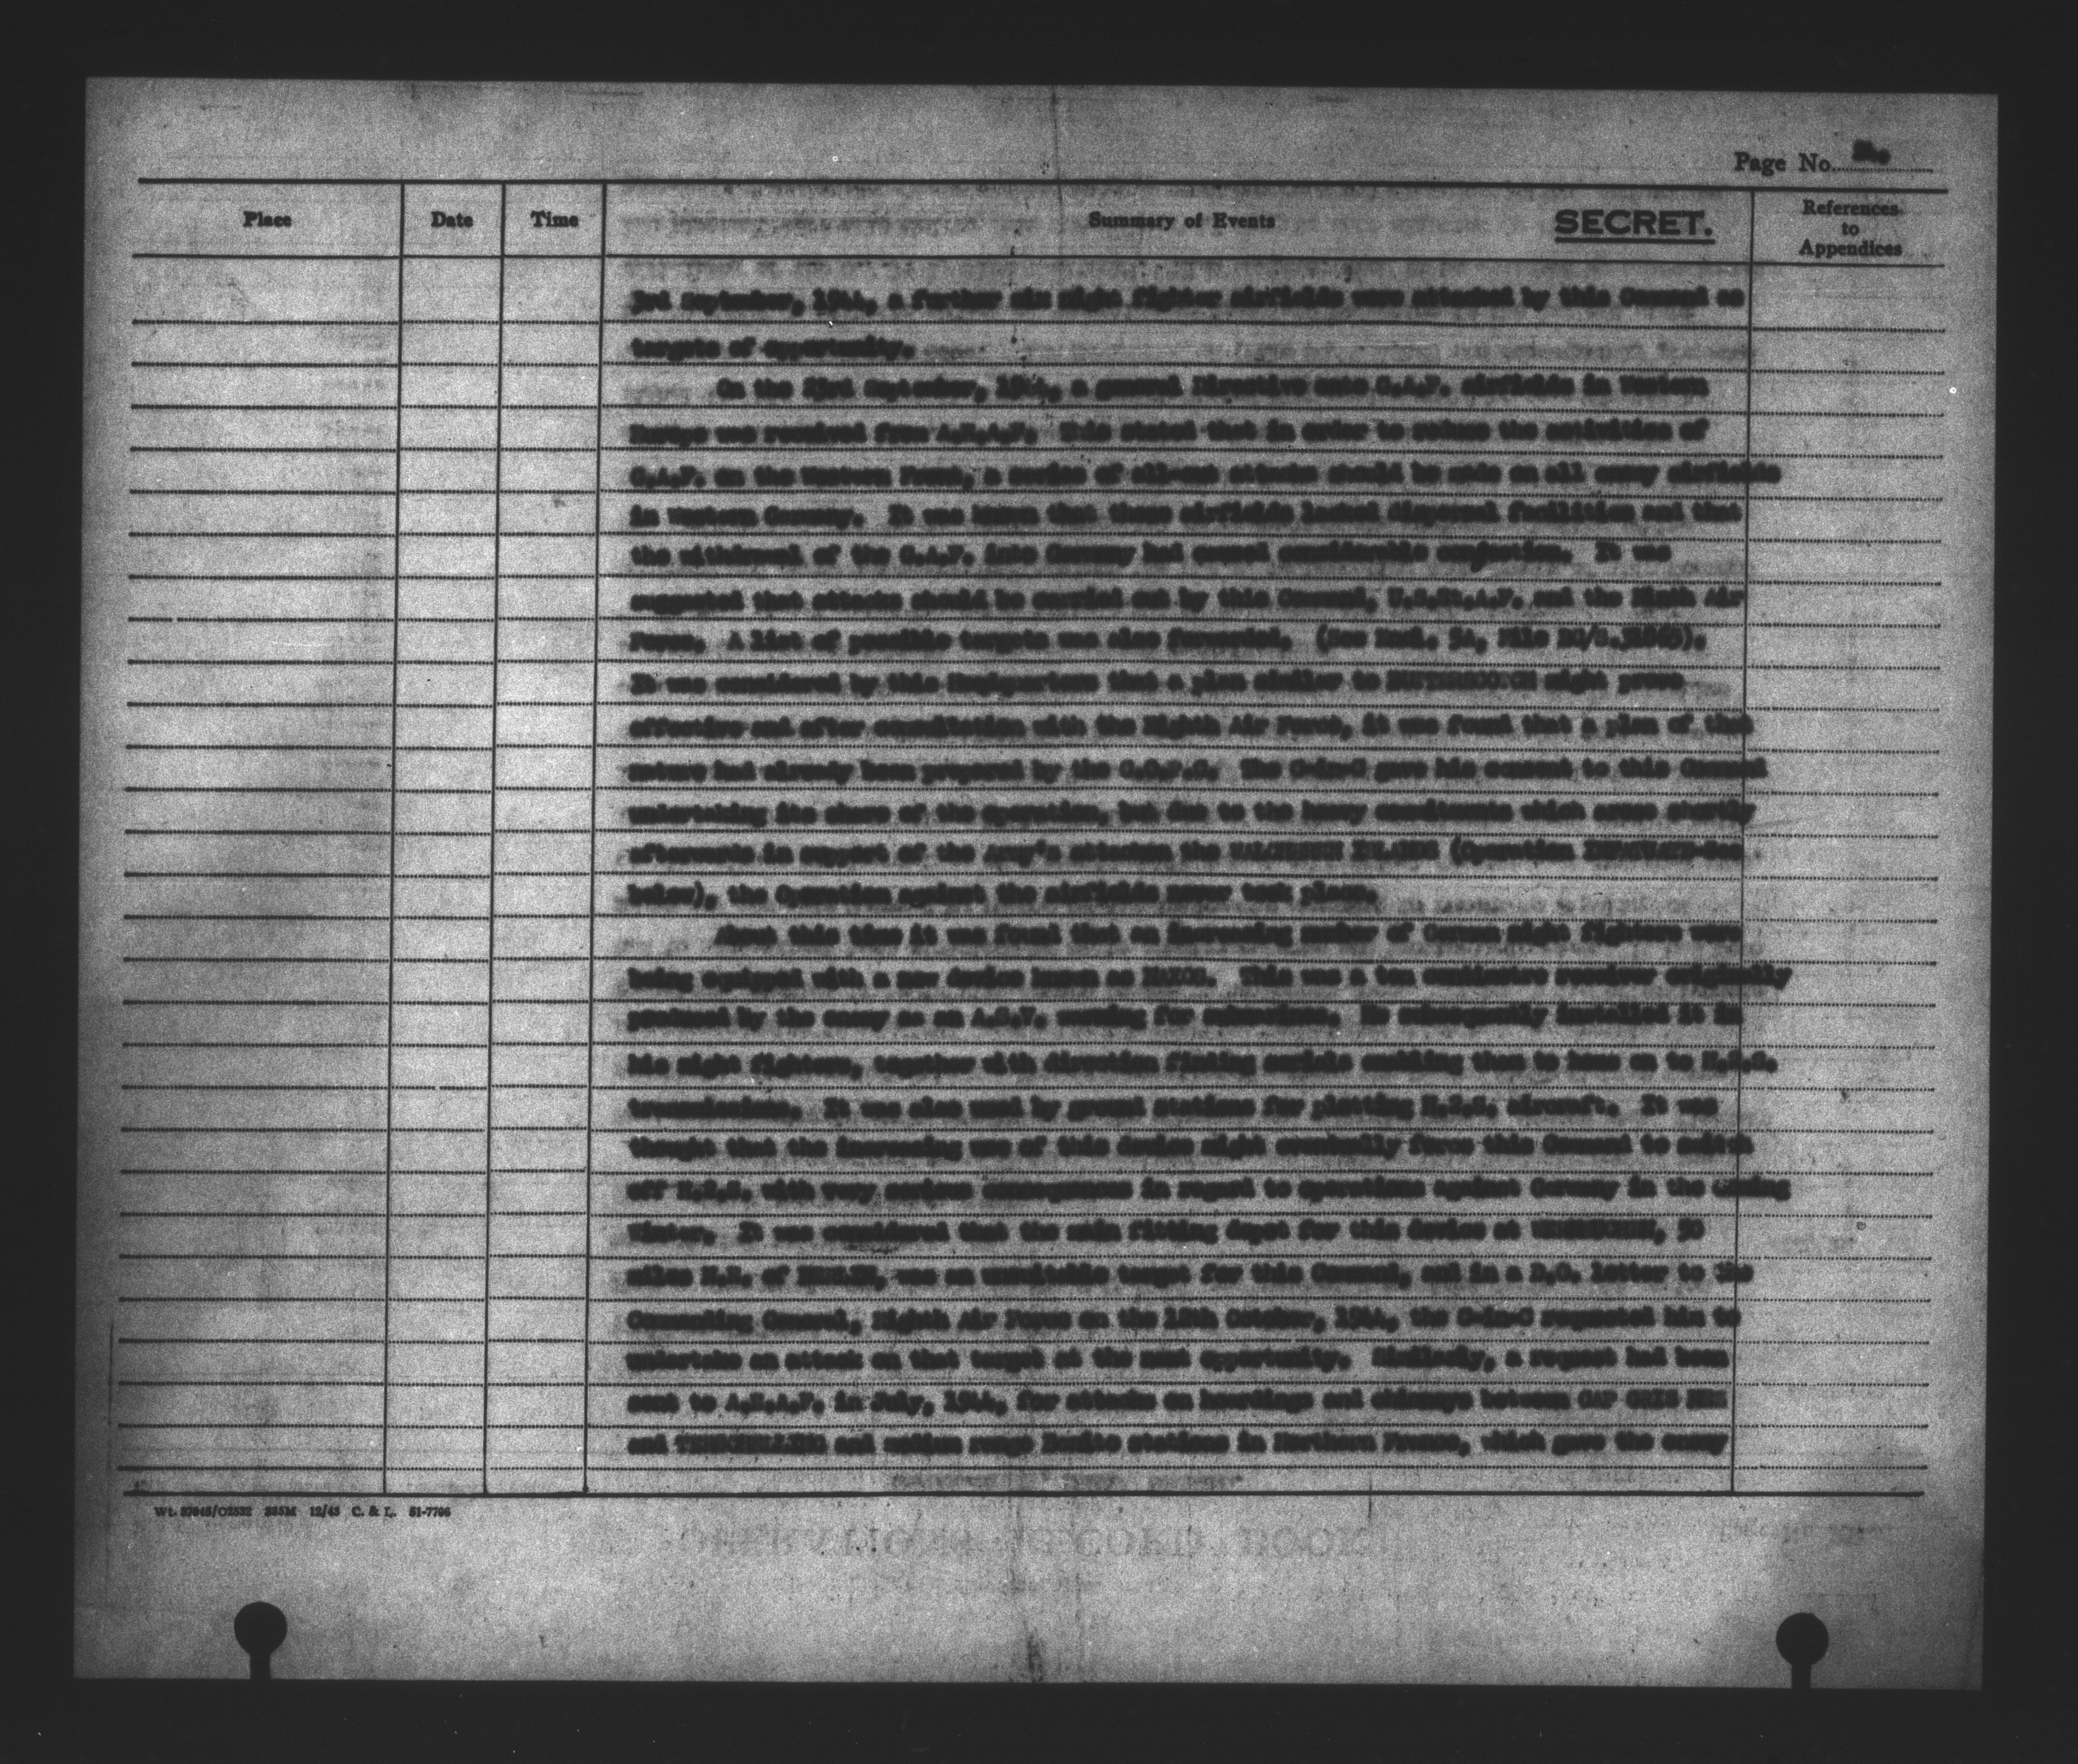 Page No.
Place Date Time Summary of Events SECRET. References to Appendices
3rd September, 1944, a further six night fighter airfields were attacked by this Command as
targets of opportunity.
On the 23rd September, 1944, a general Directive onto G.A.F. airfields in Western
Europe was received from A.E.A.F. This stated that in order to reduce the activities of
G.A.F. on the Western Front, a series of attacks should be made on all enemy airfields
in Western Germany. It was known that these airfields lacked dispersal facilities and that
the withdrawal of the G.A.F. into Germany had caused considerable congestion. It was
suggested that attacks should be carried out by this Command, U.S.St.A.F. and the Ninth Air
Force. A list of possible targets was also forwarded. (See Encl. 5A, File
It was considered by this Headquarters that a plan similar to might prove
effective and after consultation with the Eighth Air Force, it was found that a plan of that
nature had already been prepared by the The C-in-C gave his consent to this Command
undertaking its share of the operation, but due to the heavy commitments which arose shortly
afterwards in support of the Army's attack on the WALCHEREN ISLANDS (Operation INFATUATE-See
below), the Operation against the airfields never took place.
About this time it was found that an increasing number of German night fighters were
being equipped with a new device known as NAXOS. This was a ten centimetre receiver originally
produced by the enemy as an A.S.V. warning for submarines. He subsequently installed it in
his night fighters, together with direction finding aerials enabling them to home on to H.2.S.
transmissions. It was also used by ground stations for plotting H.2.S. aircraft. It was
thought that the increasing use of this device might eventually force this Command to switch
off H.2.S. with very serious consequences in regard to operations against Germany in the coming
Winter. It was considered that the main fitting depot for this device at 50
miles of was an unsuitable target for this Command, and in a D.O. letter to the
Commanding General, Eighth Air Force on the October, 1944, the C-in-C requested him to
undertake an attack on that target at the next opportunity. Similarly, a request had been
sent to A.E.A.F. in July, 1944, for attacks on and between CAP GRIS NEZ
and TERSCHELLING and medium range Benito stations in Northern France, which gave the enemy
Wt. 12/43 C. & L. 51-7706